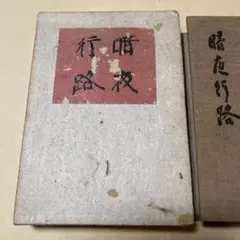 暗夜
行路
暗夜行路